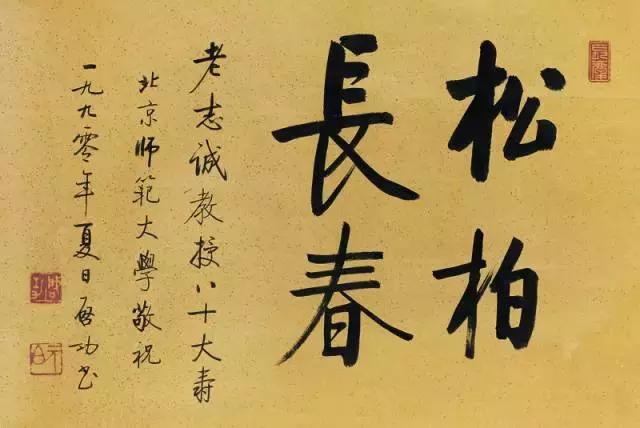 松柏
長春
老志誠教授八十大壽
北京师範大學敬祝
一九九零年夏日啓功书